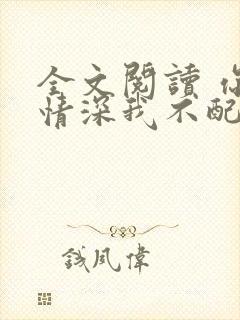 全文閱讀 你
情深我不配
錢風偉